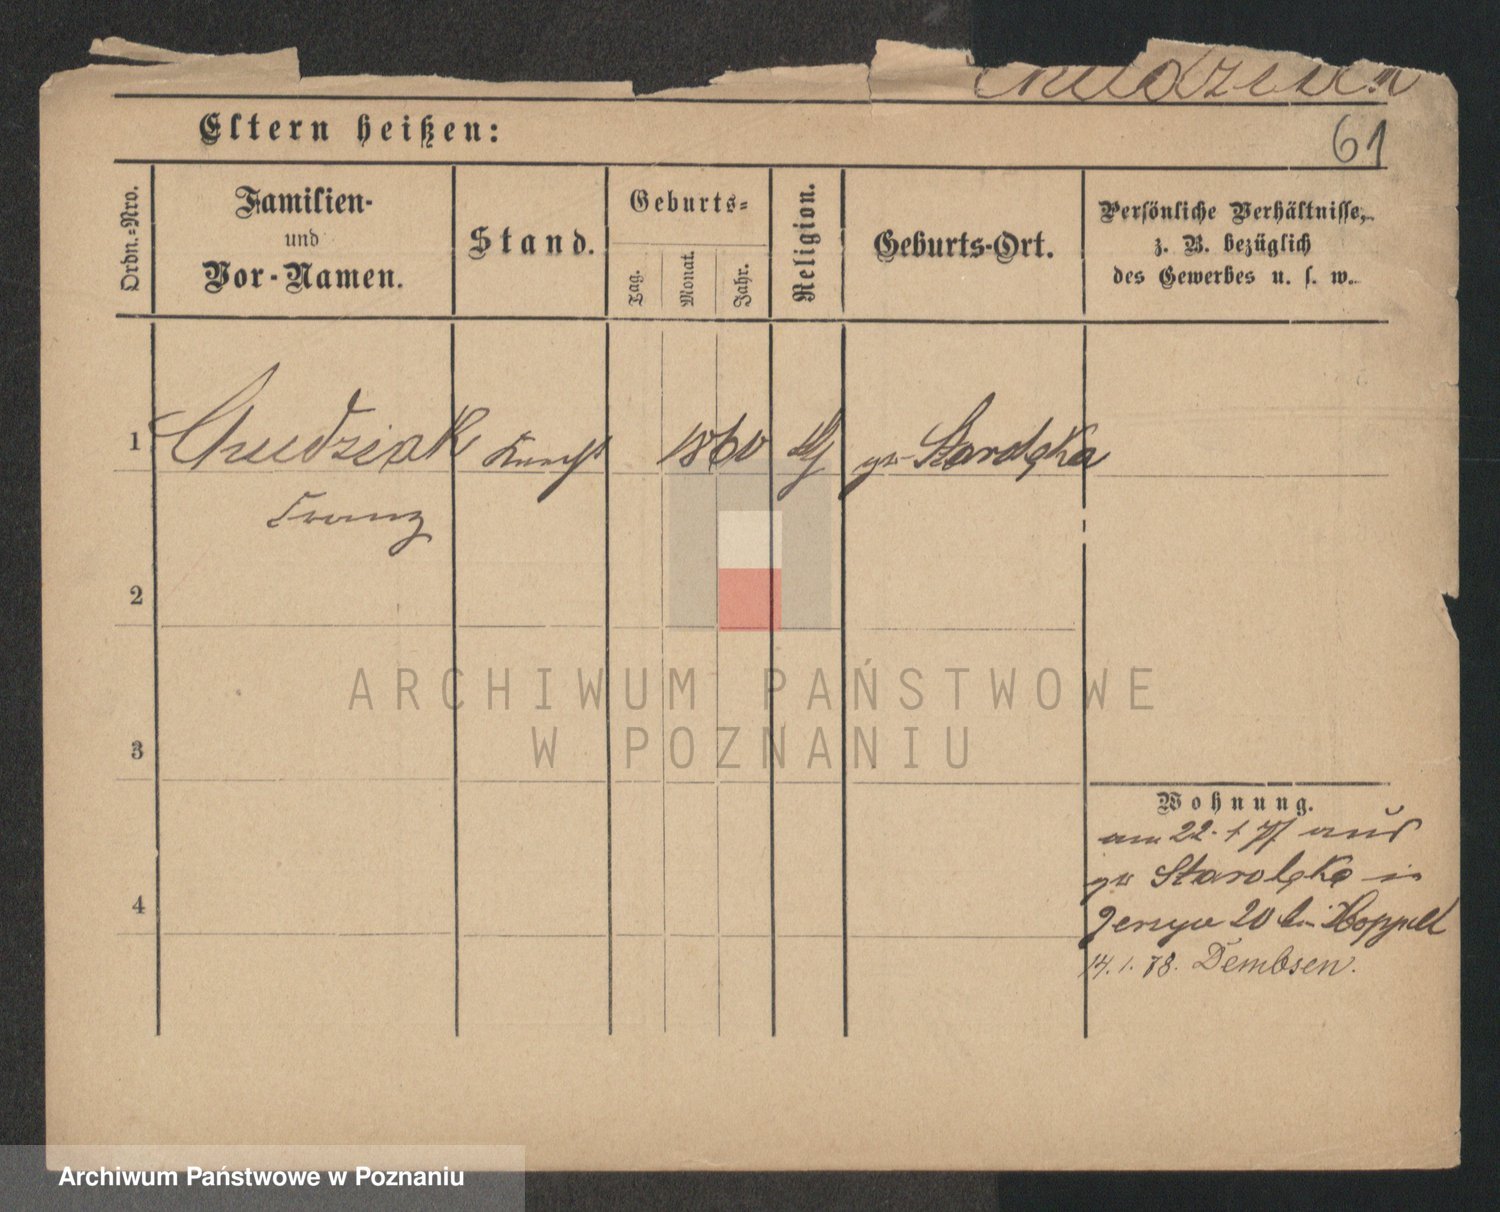 61
Eltern heißen:
Ordn.-Nro.
Familien-
und
Vor-Namen.
Stand.
Geburts-
Tag.
Monat.
Jahr.
Religion.
Geburts-Ort.
Persönliche Verhältnisse,
z. B. bezüglich
des Gewerbes u. s. w.
1
Chudziak
1860
gr Starolęka
Franz
2
3
4
Wohnung.
am 22. 1 77 aus
gr Starolęka in
20 bei
14. 1. 78. Dembsen.
ARCHIWUM PAŃSTWOWE
W POZNANIU
Archiwum Państwowe w Poznaniu